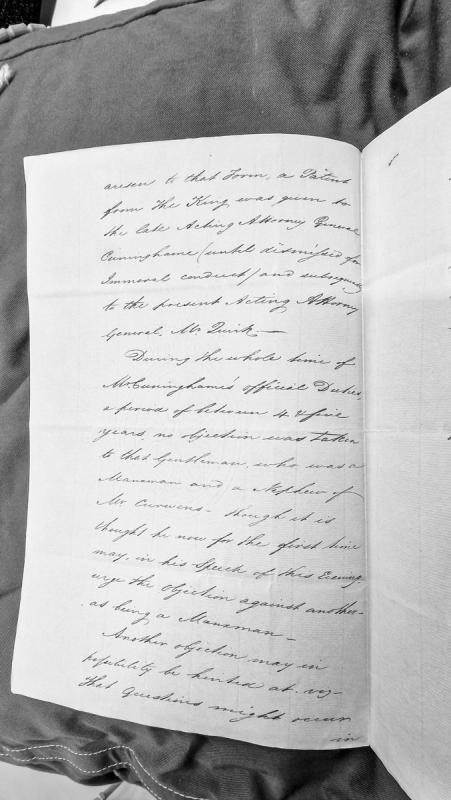 arisen to that Form, a Patent
from The King was given to
the late Acting Attorney General
Cuninghame (until dismissed for
Immoral conduct) and subsequently
to the present Acting Attorney
General, Mr Quirk.—
During the whole time of
Mr Cuninghame's official Duties,
a period of between 4 & five
years, no objection was taken
to that Gentleman, who was a
Manxman and a Nephew of
Mr Curwens – though it is
thought he now for the first time
may, in his Speech of this Evening,
urge the Objection against another–
as being a Manxman –
Another objection may in
possibility be hinted at. viz–
That Questions might occur
in